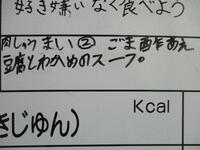 好き嫌いなく食べよう
肉しゅうまい② ごま酢あえ
豆腐とわかめのスープ。
Kcal
きじゅん)